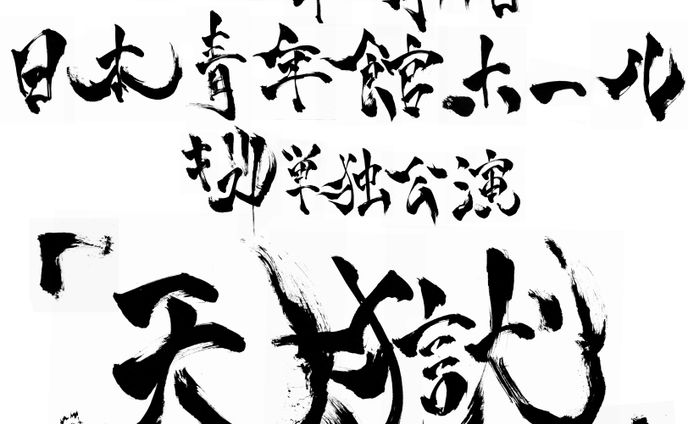 日本青年館ホール
単独公演
「天獄」